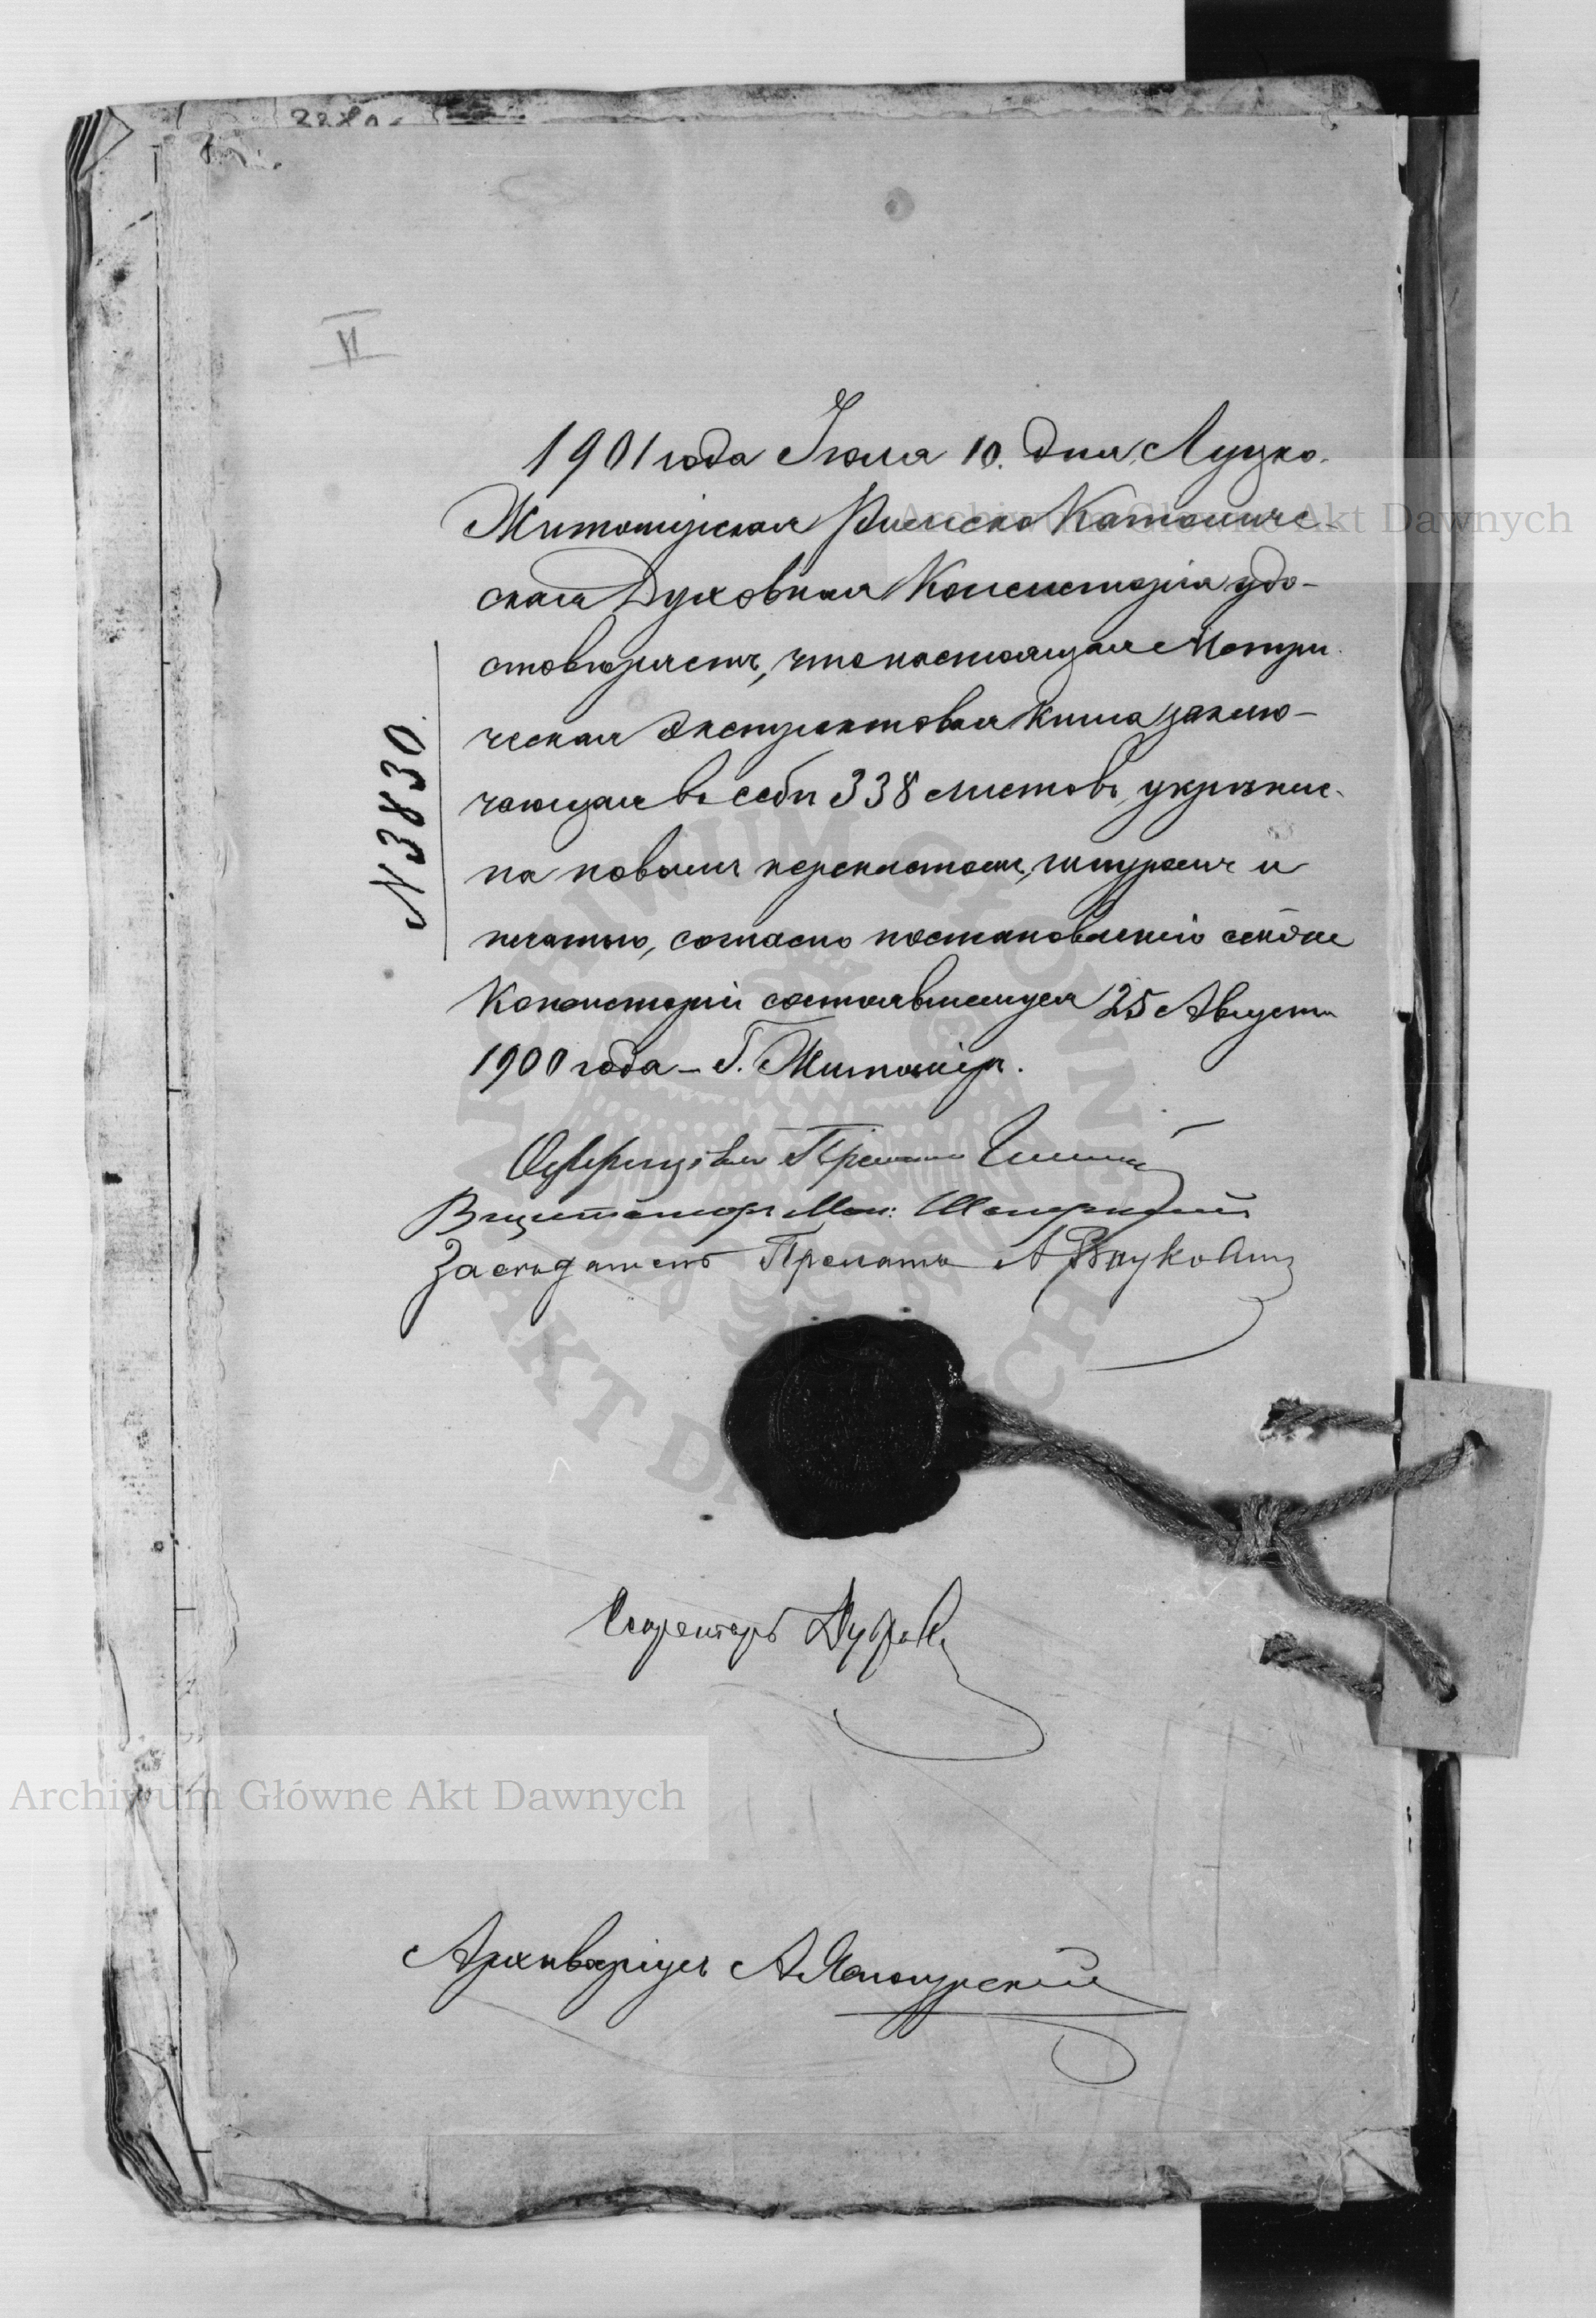 II
N 3830.
1901 года Іюля 10. дня, Луцко-
Житомірская Римско Католиче-
ская Духовная Консисторія удо-
стовѣряетъ, что настоящая Метри-
ческая Экстрактовая Книга заклю-
чающая въ себѣ 338 листовъ, укрѣпле-
на новымъ переплетомъ, шнуромъ и
печатью, согласно постановленію сей же
Консисторіи состоявшемуся 25 Августа
1900 года – Г. Житоміръ.
Прелатъ
Визитаторъ Мон:
Засѣдатель Прелатъ А
Секретарь
Архиваріусъ А.
Archiwum Główne Akt Dawnych
Archiwum Główne Akt Dawnych
ARCHIWUM GŁÓWNE AKT DAWNYCH